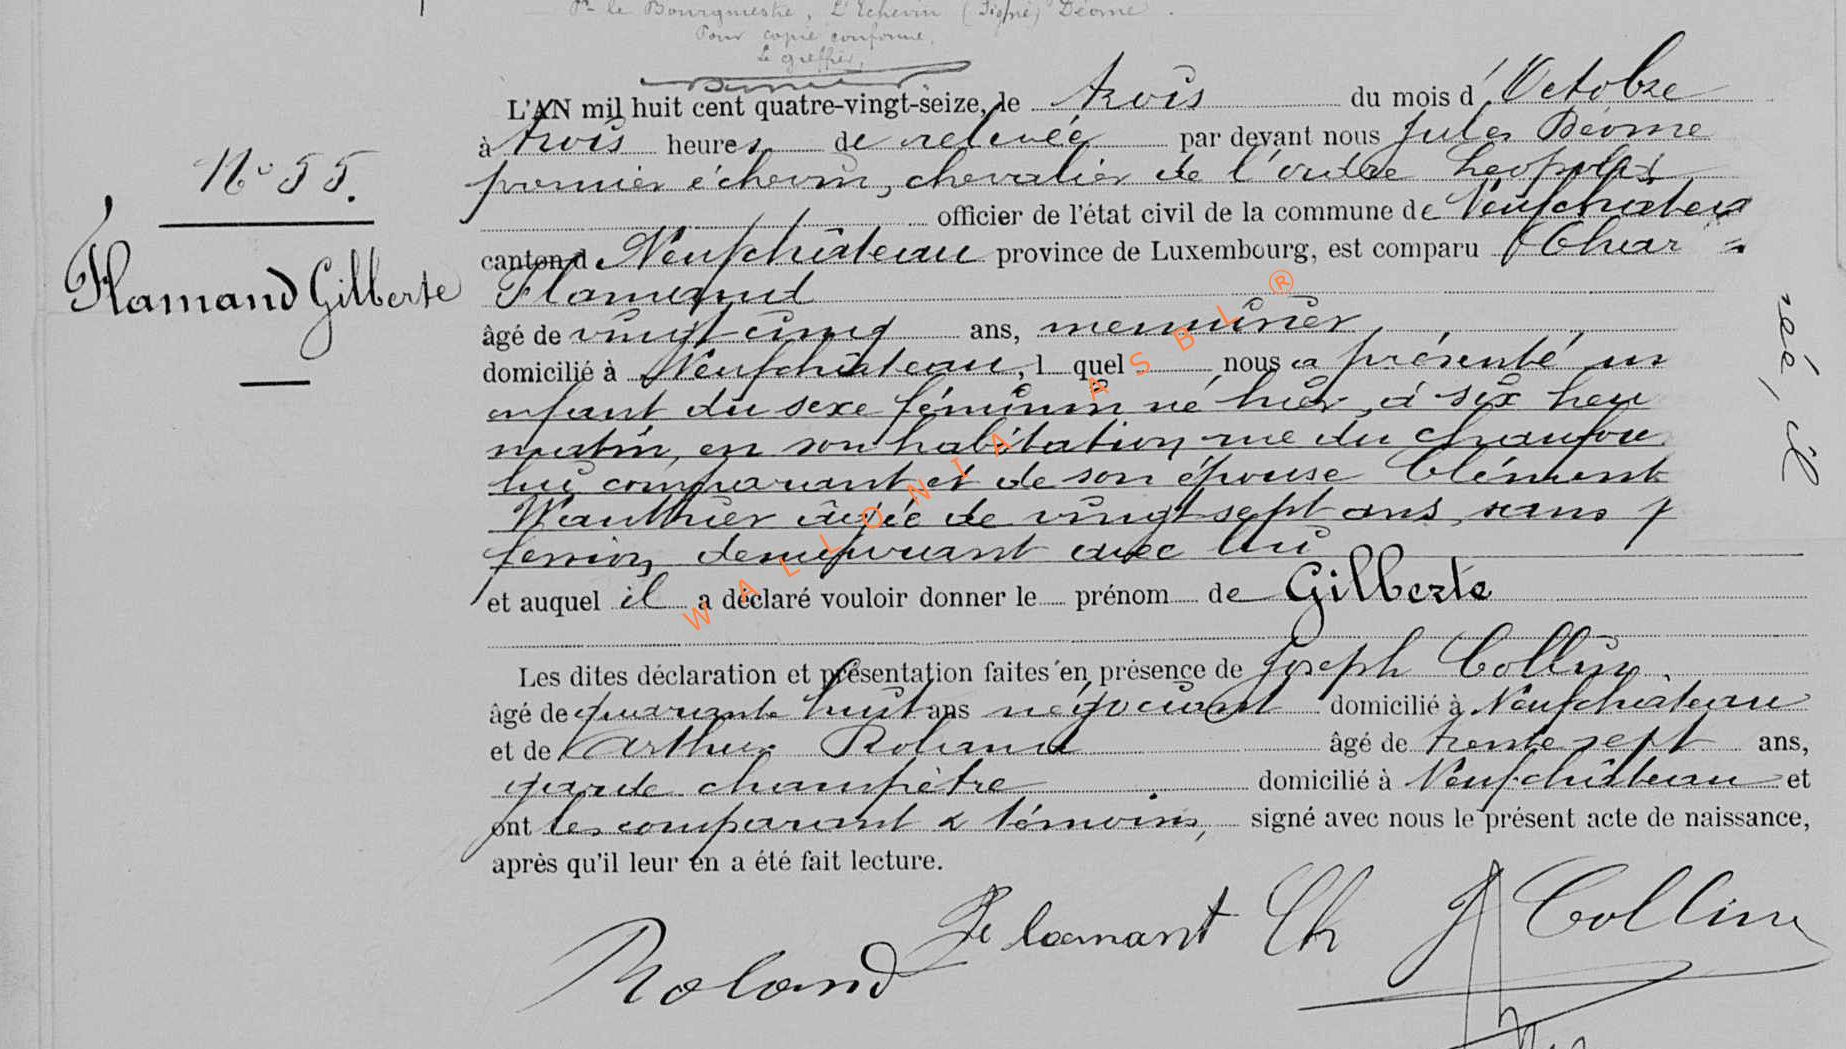 Pr le Bourgmestre, L'Echevin (Signé) Déome.
Pour copie conforme,
Le greffier,
L'AN mil huit cent quatre-vingt-seize, le trois du mois d'Octobre
à trois heures de relevée par devant nous Jules Déome
premier échevin, chevalier de l'ordre Léopold
officier de l'état civil de la commune de Neufchâteau
canton d Neufchâteau province de Luxembourg, est comparu Char =
Flamand
âgé de vingt cinq ans, menuisier,
domicilié à Neufchâteau, l quel nous a présenté un
enfant du sexe féminin né hier, à six heu
matin, en son habitation rue du Chaufou
lui comparant et de son épouse Clément
Wauthier âgée de vingt sept ans, sans p
fession, demeurant avec lui
et auquel il a déclaré vouloir donner le prénom de Gilberte
Les dites déclaration et présentation faites en présence de Joseph Collin
âgé de quarante huit ans négociant domicilié à Neufchâteau
et de Arthur Roland âgé de trente sept ans,
garde champêtre domicilié à Neufchâteau et
ont les comparant & témoins, signé avec nous le présent acte de naissance,
après qu'il leur en a été fait lecture.
Flamant Ch J Collin
Roland
No 55.
Flamand Gilberte
WALLONIA ASBL ®